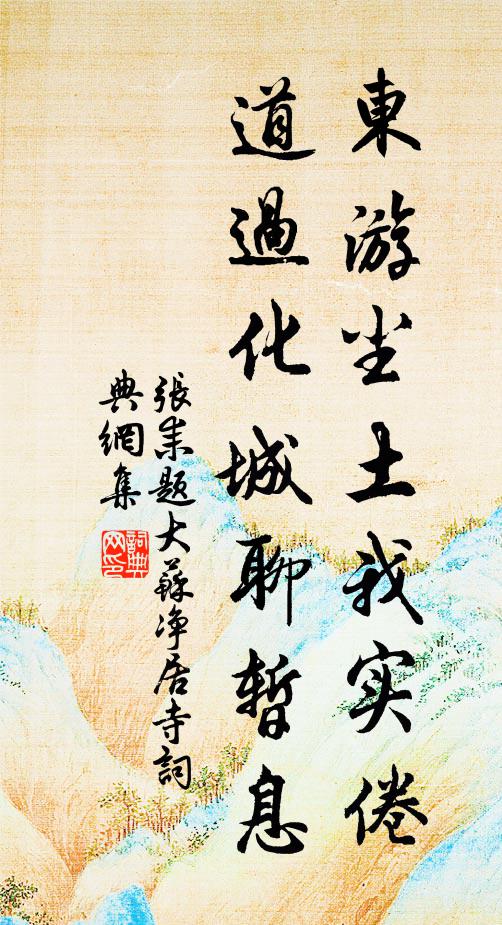 東游尘土我实倦
道過化城聊暫息
張耒題大蘇净居寺詞
典網集
詞典
网印